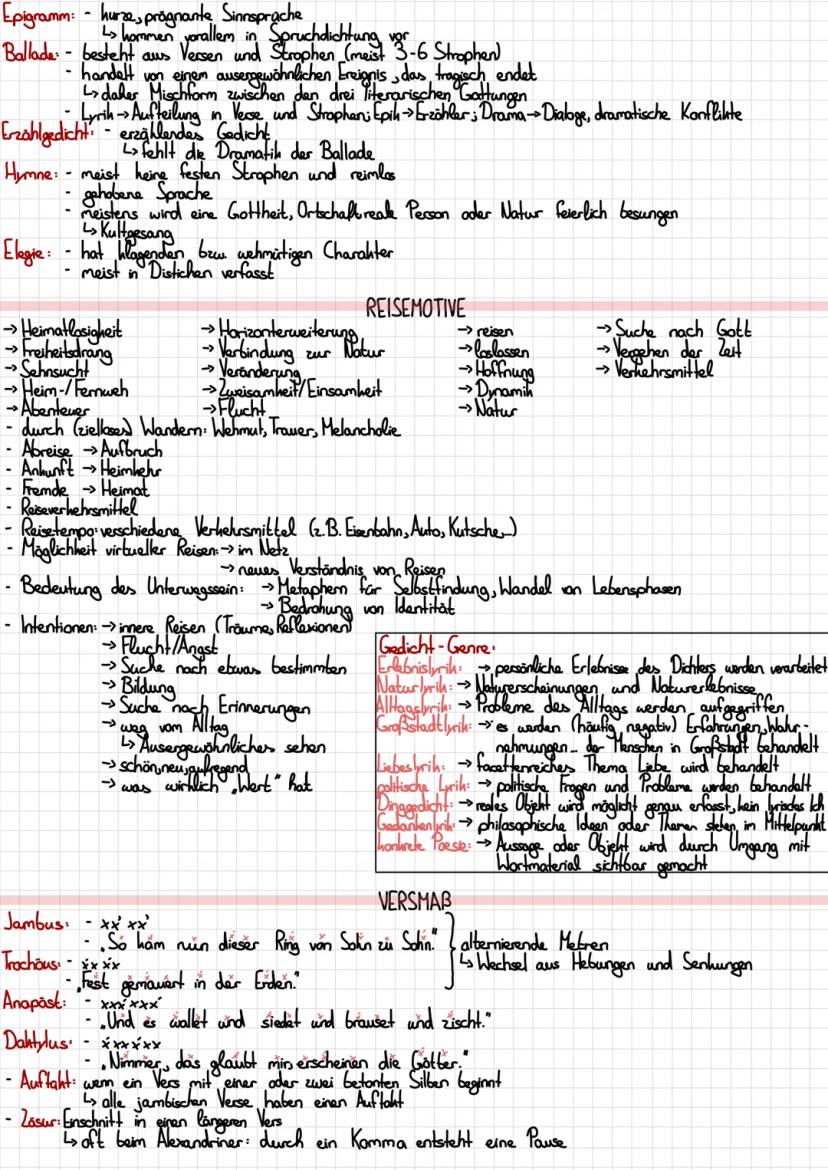 Epigramm: - kurze, prägnante Sinnsprüche
↳ kommen vorallem in Spruchdichtung vor
Ballade: - besteht aus Versen und Strophen (meist 3-6 Strophen)
- handelt von einem ausergewöhnlichen Ereignis, das tragisch endet
↳ daher Mischform zwischen den drei literarischen Gattungen
- Lyrik → Aufteilung in Verse und Strophen; Epik → Erzähler; Drama → Dialoge, dramatische Konflikte
Erzählgedicht: - erzählendes Gedicht
↳ fehlt die Dramatik der Ballade
Hymne: - meist keine festen Strophen und reimlos
- gehobene Sprache
- meistens wird eine Gottheit, Ortschaft, reale Person oder Natur feierlich besungen
↳ Kultgesang
Elegie: - hat klagenden bzw. wehmütigen Charakter
- meist in Distichen verfasst
REISEMOTIVE
→ Heimatlosigkeit → Horizonterweiterung → reisen → Suche nach Gott
→ Freiheitsdrang → Verbindung zur Natur → loslassen → Vergehen der Zeit
→ Sehnsucht → Veränderung → Hoffnung → Verkehrsmittel
→ Heim-/Fernweh → Zweisamkeit/Einsamkeit → Dynamik
→ Abenteuer → Flucht → Natur
- durch (zielloses) Wandern: Wehmut, Trauer, Melancholie
- Abreise → Aufbruch
- Ankunft → Heimkehr
- Fremde → Heimat
- Reiseverkehrsmittel
- Reisetempo: verschiedene Verkehrsmittel (z.B. Eisenbahn, Auto, Kutsche,...)
- Möglichkeit virtueller Reisen: → im Netz
→ neues Verständnis von Reisen
- Bedeutung des Unterwegsseins: → Metaphern für Selbstfindung, Wandel von Lebensphasen
→ Bedrohung von Identität
- Intentionen: → innere Reisen (Träume, Reflexionen)
→ Flucht/Angst
→ Suche nach etwas bestimmten
→ Bildung
→ Suche nach Erinnerungen
→ weg vom Alltag
↳ Ausergewöhnliches sehen
→ schön, neu, aufregend
→ was wirklich „Wert" hat
Gedicht-Genre:
Erlebnislyrik: → persönliche Erlebnisse des Dichters werden verarbeitet
Naturlyrik: → Naturerscheinungen und Naturerlebnisse
Alltagslyrik: → Probleme des Alltags werden aufgegriffen
Großstadtlyrik: → es werden (häufig negativ) Erfahrungen, Wahr-
nehmungen... der Menschen in Großstadt behandelt
Liebeslyrik: → facettenreiches Thema Liebe wird behandelt
politische Lyrik: → politische Fragen und Probleme werden behandelt
Dinggedicht: → reales Objekt wird möglicht genau erfasst, kein lyrisches Ich
Gedankenlyrik: → philosophische Ideen oder Themen stehen im Mittelpunkt
konkrete Poesie: → Aussage oder Objekt wird durch Umgang mit
Wortmaterial sichtbar gemacht
VERSMAß
Jambus: - xx́ xx́
- „So kam nun dieser Ring von Sohn zu Sohn." alternierende Metren
Trochäus: - x́x x́x ↳ Wechsel aus Hebungen und Senkungen
- „Fest gemauert in der Erden."
Anapäst: - xxx́ xxx́
- „Und es wallet und siedet und brauset und zischt."
Daktylus: - x́xx x́xx
- „Nimmer, das glaubt mir, erscheinen die Götter."
- Auftakt: wenn ein Vers mit einer oder zwei betonten Silben beginnt
↳ alle jambischen Verse haben einen Auftakt
- Zäsur: Einschnitt in einen längeren Vers
↳ oft beim Alexandriner: durch ein Komma entsteht eine Pause